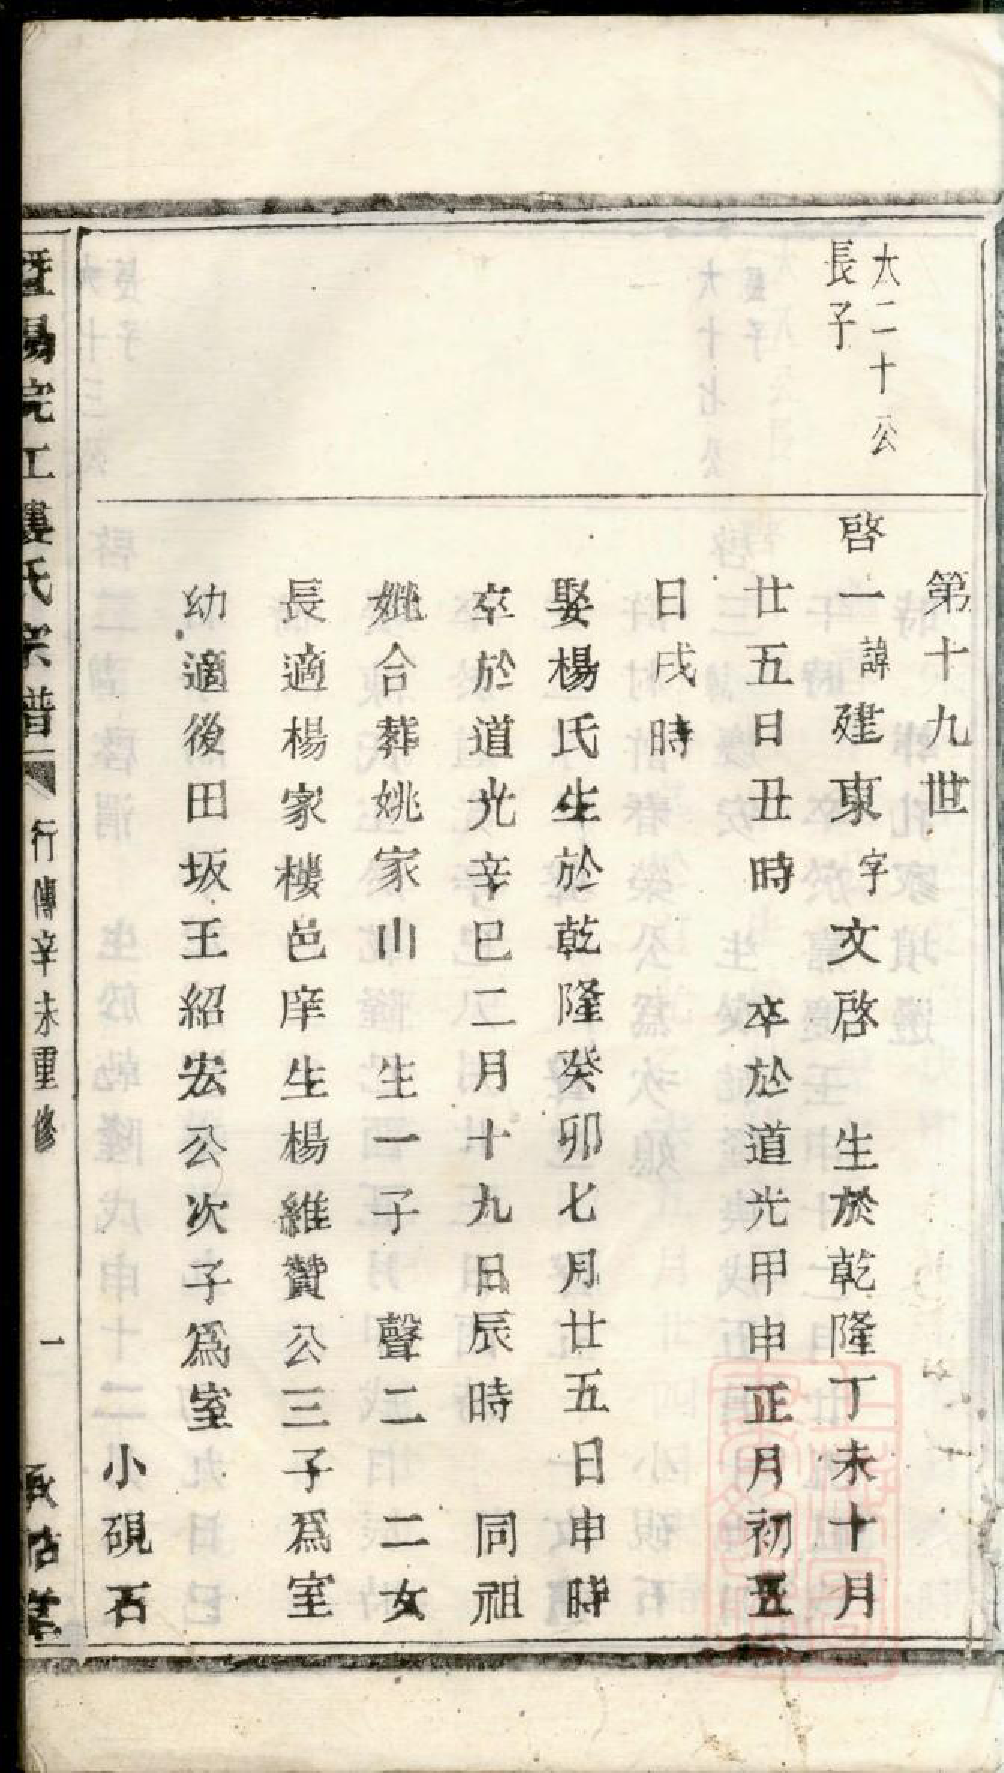 第十九世
太二十公
長子
啓一諱建東字文啓 生於乾隆丁未十月
廿五日丑時 卒於道光甲申正月初五
日戌時
娶楊氏生於乾隆癸卯七月廿五日申時
卒於道光辛巳二月十九日辰時 同祖
妣合葬姚家山 生一子 聲二 二女
長適楊家樓邑庠生楊維贊公三子爲室
幼適後田坂王紹宏公次子爲室
小硯石
暨陽浣江婁氏宗譜 行傳辛未重修 一